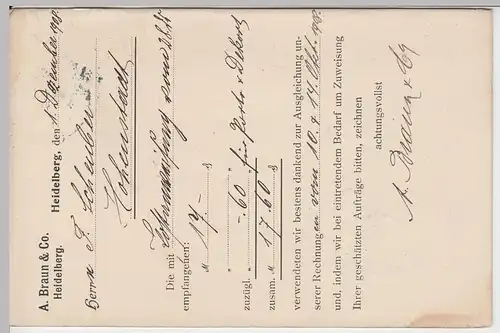 A. Braun & Co.
Heidelberg.
Heidelberg, den 1. Dezember 1908.
Herrn
Die mit
empfangenen:
" 17.— ₰
" —.60 " für Porto
zuzügl.
zusam. " 17.60 ₰
verwendeten wir bestens dankend zur Ausgleichung un-
serer Rechnungen vom 10. & 14. Okt. 1908.
und, indem wir bei eintretendem Bedarf um Zuweisung
Ihrer geschätzten Aufträge bitten, zeichnen
achtungsvollst
A. Braun & Co